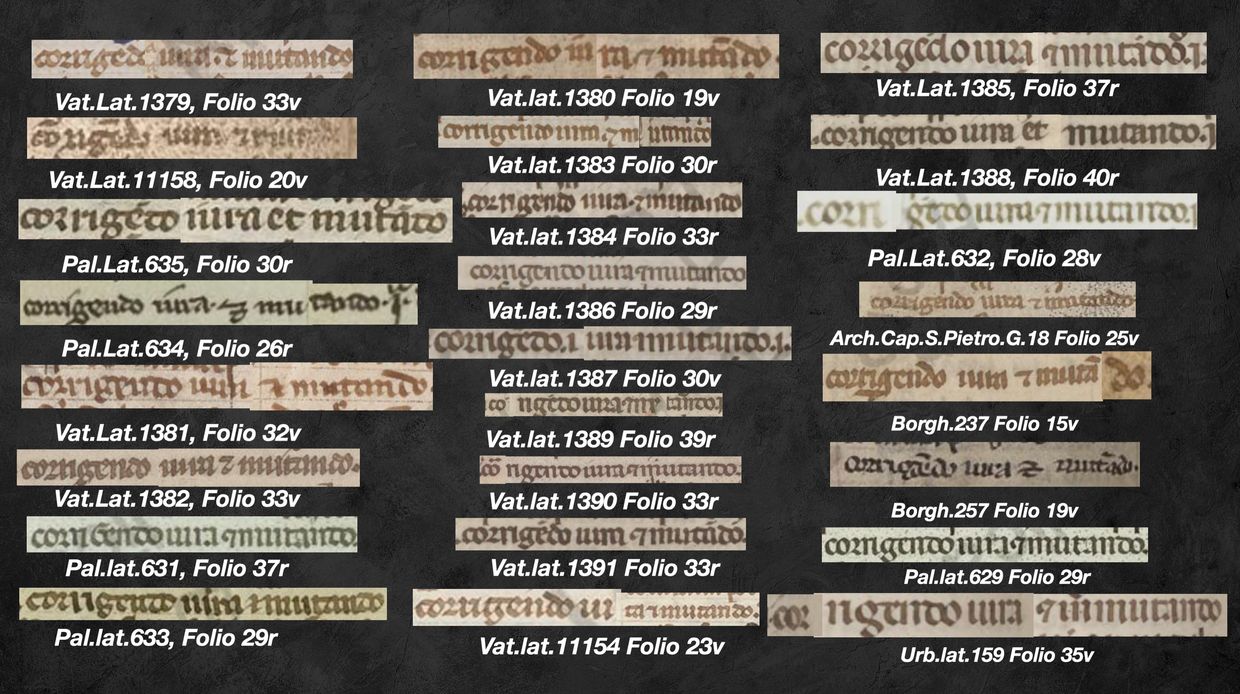 corrigēdo iura ⁊ mutando
Vat.Lat.1379, Folio 33v
Vat.Lat.11158, Folio 20v
corrigēto iura et mutāto
Pal.Lat.635, Folio 30r
corrigendo iura ⁊ mutando
Pal.Lat.634, Folio 26r
corrigendo iura ⁊ mutando
Vat.Lat.1381, Folio 32v
corrigendo iura ⁊ mutando.
Vat.Lat.1382, Folio 33v
corrigendo iura ⁊ mutando
Pal.lat.631, Folio 37r
corrigendo iura ⁊ mutando
Pal.lat.633, Folio 29r
corrigendo iura ⁊ mutādo
Vat.lat.1380 Folio 19v
corrigendo iura ⁊ mutando
Vat.lat.1383 Folio 30r
corrigendo iura ⁊ mutando
Vat.lat.1384 Folio 33r
corrigendo iura ⁊ mutando
Vat.lat.1386 Folio 29r
corrigēdo.i iura mutando.i.
Vat.lat.1387 Folio 30v
Vat.lat.1389 Folio 39r
corrigendo iura ⁊ mutando.
Vat.lat.1390 Folio 33r
corrigēdo iura ⁊ mutādo.
Vat.lat.1391 Folio 33r
corrigendo iura ⁊ mutando.
Vat.lat.11154 Folio 23v
corrigēdo iura ⁊ mutādo.i
Vat.Lat.1385, Folio 37r
corrigendo iura et mutando.i
Vat.Lat.1388, Folio 40r
corrigēdo iura ⁊ mutando.
Pal.Lat.632, Folio 28v
corrigendo iura ⁊ mutando
Arch.Cap.S.Pietro.G.18 Folio 25v
corrigendo iura ⁊ mutādo.
Borgh.237 Folio 15v
corrigēdo iura ⁊ mutādo.
Borgh.257 Folio 19v
corrigendo iura ⁊ mutando.
Pal.lat.629 Folio 29r
corrigendo iura ⁊ mutando
Urb.lat.159 Folio 35v